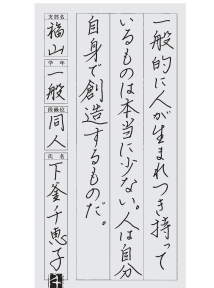 一般的に人が生まれつき持って
いるものは本当に少ない。人は自分
自身で創造するものだ。
支部名
福山
学年
一般
段級位
同人
氏名
下釜千恵子